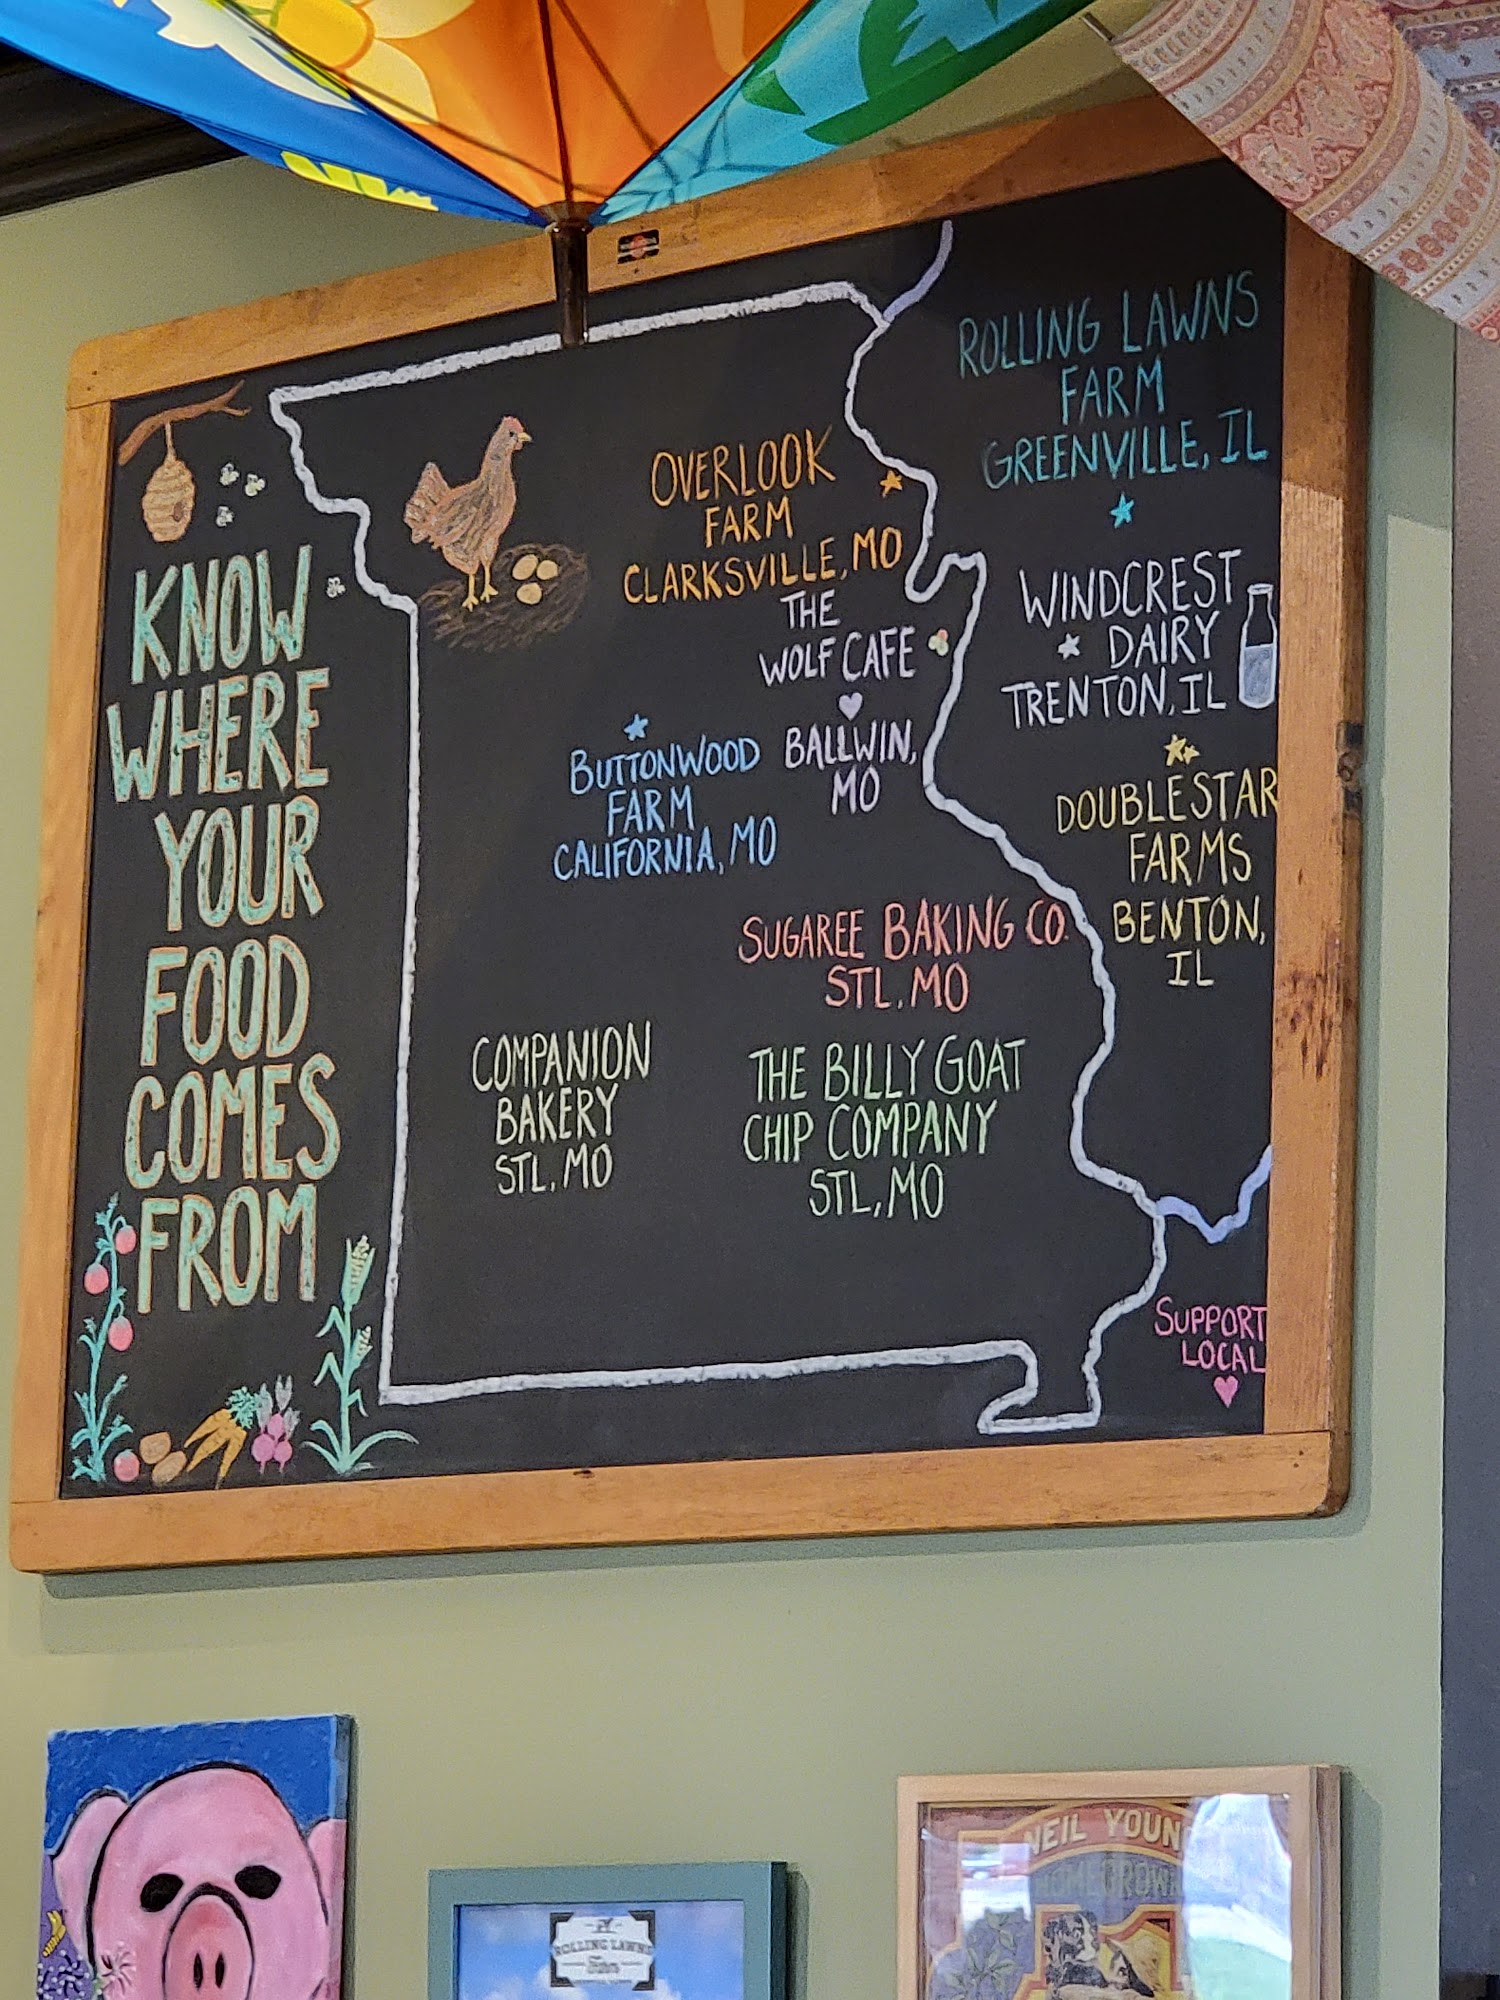 KNOW
WHERE
YOUR
FOOD
COMES
FROM
OVERLOOK
FARM
CLARKSVILLE, MO
THE
WOLF CAFE
BALLWIN,
MO
BUTTONWOOD
FARM
CALIFORNIA, MO
SUGAREE BAKING CO.
STL, MO
COMPANION
BAKERY
STL, MO
THE BILLY GOAT
CHIP COMPANY
STL, MO
ROLLING LAWNS
FARM
GREENVILLE, IL
WINDCREST
DAIRY
TRENTON, IL
DOUBLESTAR
FARMS
BENTON,
IL
SUPPORT
LOCAL
ROLLING LAWNS
Farm
NEIL YOUN
HOMEGROWN